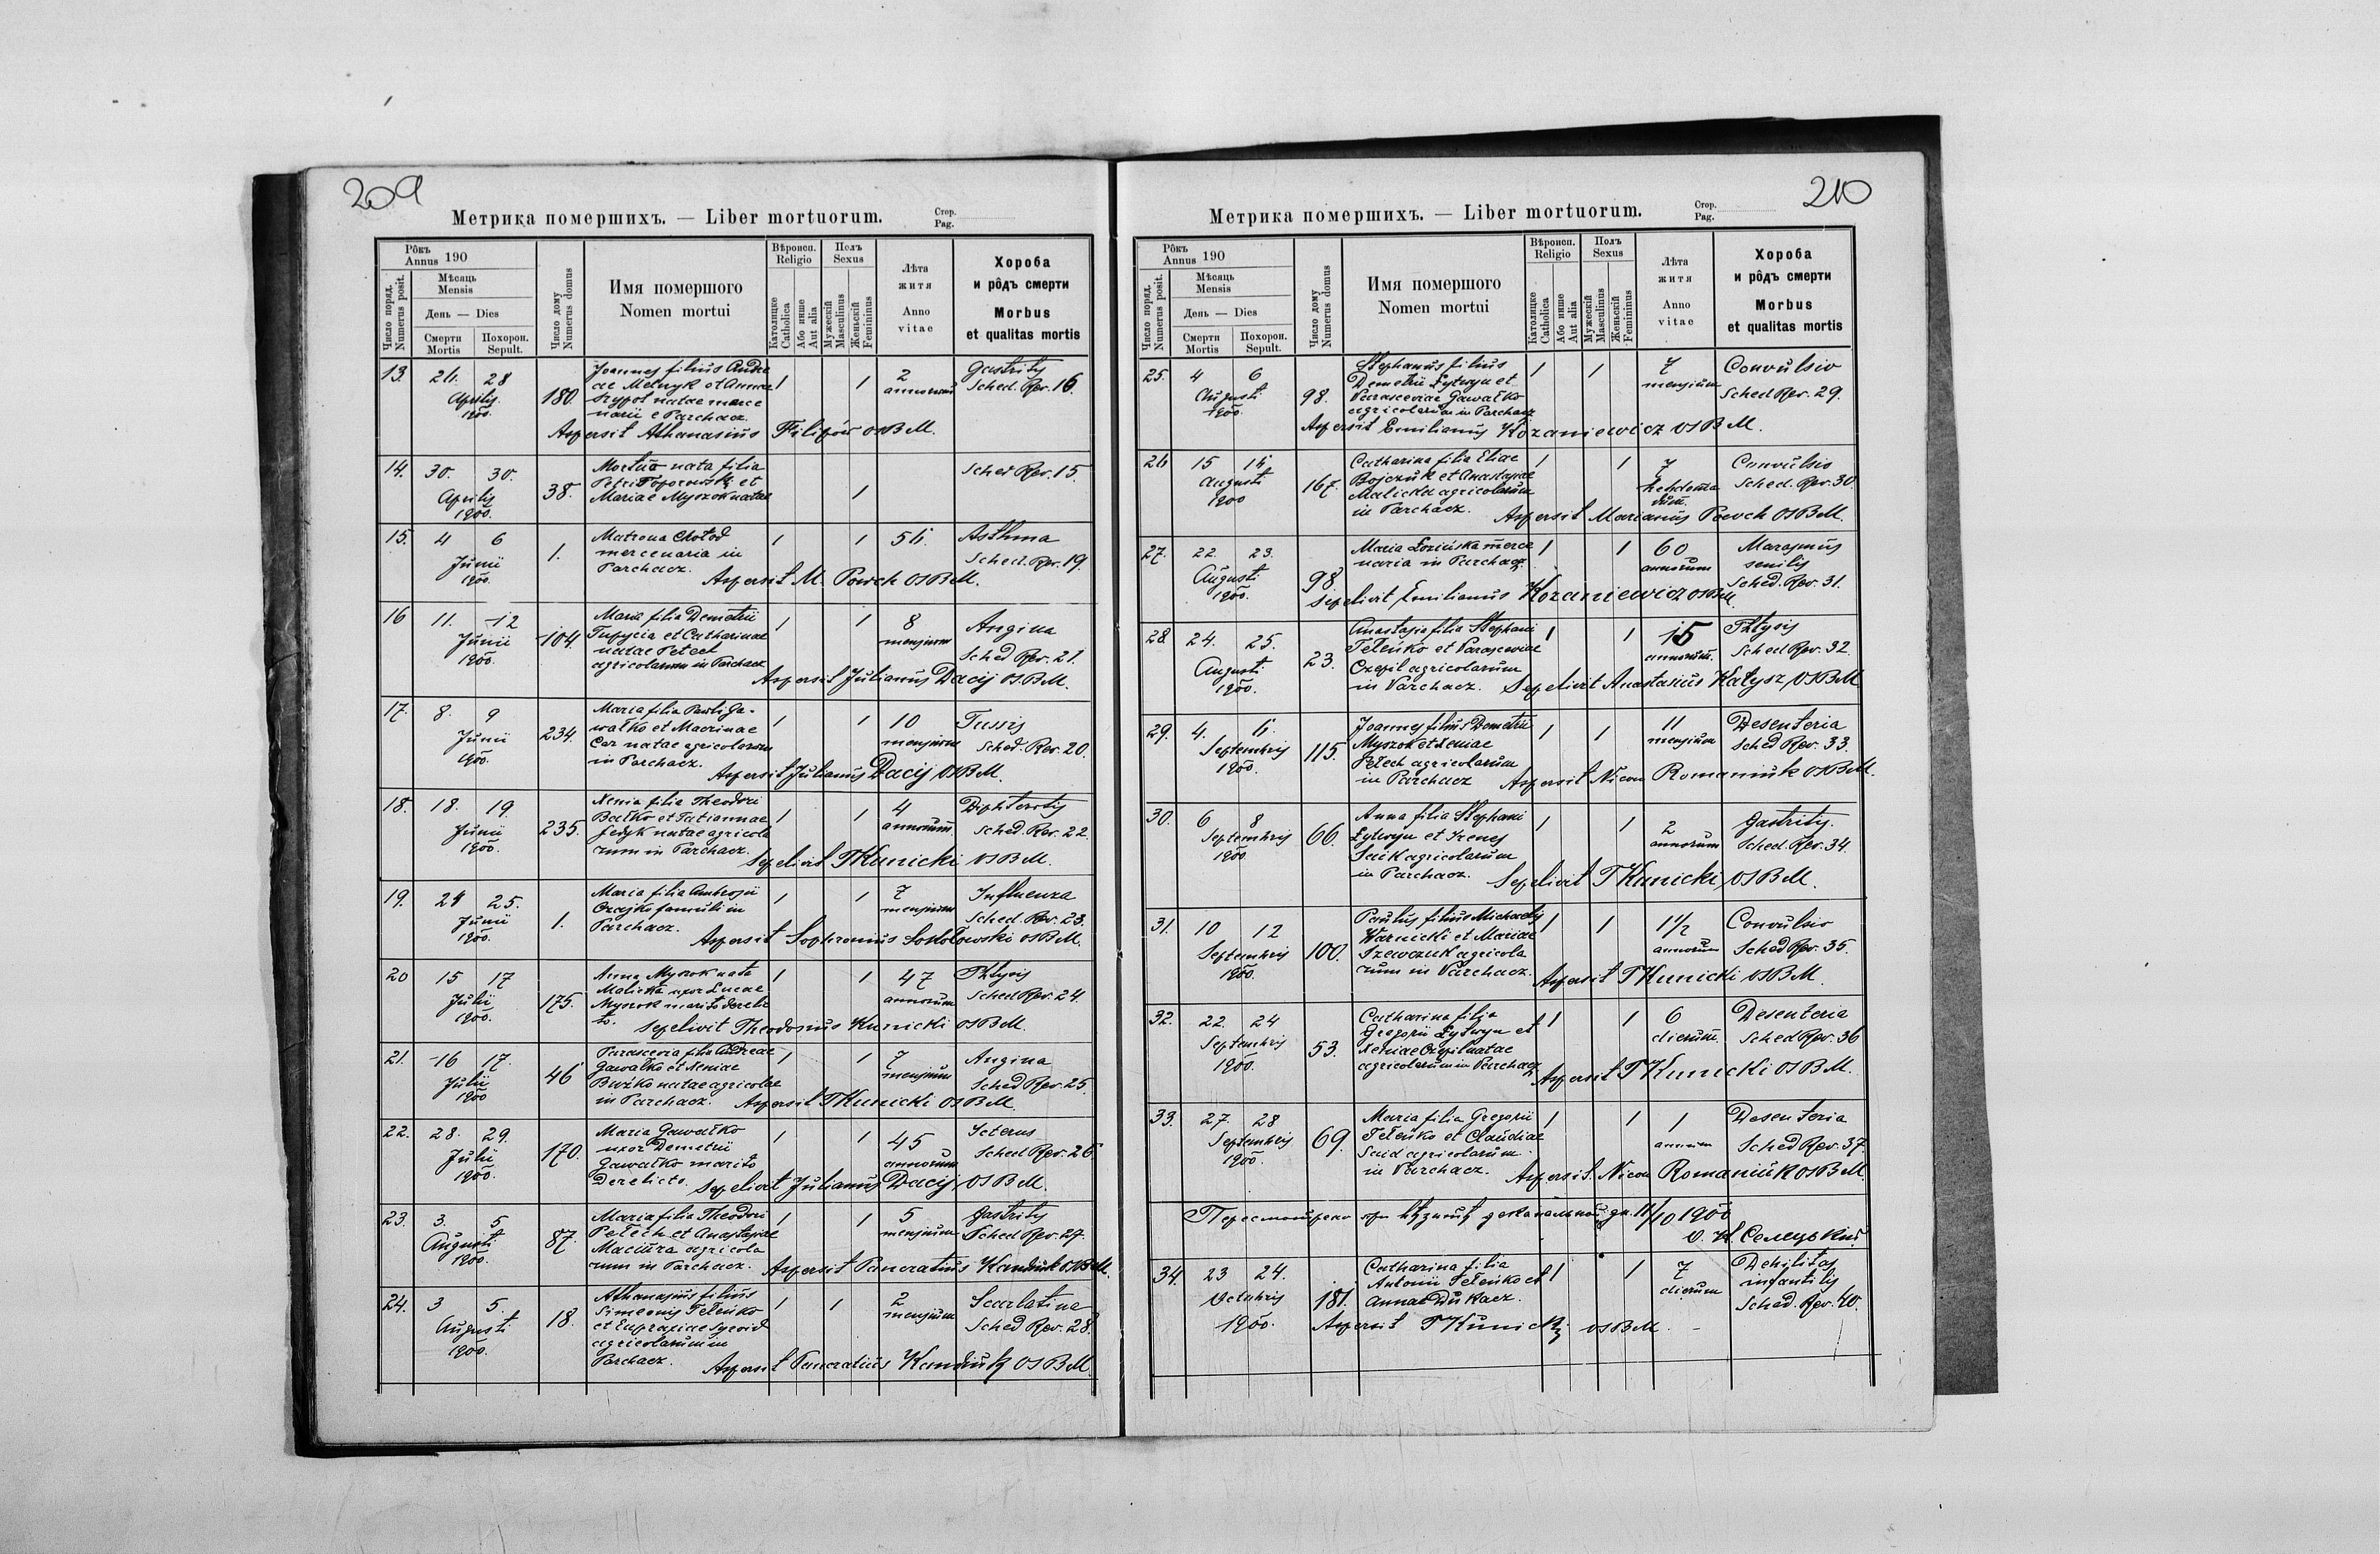 209
Метрика помершихъ. — Liber mortuorum.
Стор.
Pag.
Рôкъ
Annus 190
Число поряд.
Numerus posit.
Мѣсяць
Mensis
День — Dies
Смерти
Mortis
Похорон.
Sepult.
Число дому
Numerus domus
Имя помершого
Nomen mortui
Вѣроисп.
Religio
Католицке
Catholica
Або инше
Aut alia
Полъ
Sexus
Мужескій
Masculinus
Женьскій
Femininus
Лѣта
житя
Anno
vitae
Хороба
и рôдъ смерти
Morbus
et qualitas mortis
13. 26. 28
Aprilis
1900.
180.
Joannes filius Andre
ae Melnyk et Annae
natae merce
narii e Parchacz.
1 1
2
annorum
Gastritis
Sched. Rev. 16.
Aspersit Athanasius Filipów OSBM.
14. 30. 30.
Aprilis
1900.
38.
Mortua nata filia
Petri Toporowski et
Mariae Myszok natae
1
Sched Rev. 15.
15. 4 6
Junii
1900.
1.
Matrona Chołod
mercenaria in
Parchacz.
1 1
56.
Asthma
Sched. Rev. 19.
Aspersit M. Powch OSBM.
16 11. 12
Junii
1900.
104.
Maria filia Demetrii
et Catharinae
natae Petech
agricolarum in Parchacz
1 1
8
mensium
Angina
Sched Rev. 21.
Aspersit Julianus Dacij OSBM.
17. 8. 9
Junii
1900.
234.
Maria filia Pauli Ga-
wałko et Macrinae
Car natae agricolarum
in Parchacz.
1 1
10
mensium
Tussis
Sched. Rev. 20.
Aspersit Julianus Dacij OSBM.
18. 18. 19.
Junii
1900.
235.
Xenia filia Theodori
Bałko et Tatiannae
Fedyk natae agricola
rum in Parchacz.
1 1
4
annorum.
Diphteritis
Sched. Rev. 22.
Sepelivit T Kunicki OSBM.
19. 24 25.
Junii
1900.
1.
Maria filia Ambrosii
famuli in
Parchacz.
1 1
7
mensium
Influenza
Sched. Rev. 23.
Aspersit Sophronius Sokołowski OSBM.
20 15 17
Julii
1900.
175.
Anna Myszok nata
Malicka uxor Lucae
Myszok marito derelic
to.
1 1
47
annorum
Phtysis
Sched Rev. 24.
Sepelivit Theodosius Kunicki OSBM.
21. 16 17.
Julii
1900
46
Parascevia filia Andreae
Gawałko et Xeniae
Bużko natae agricolae
in Parchacz.
1 1
7
mensium
Angina
Sched Rev. 25.
Aspersit T Kunicki OSBM.
22. 28. 29.
Julii
1900.
170.
Maria Gawałko
uxor Demetrii
Gawałko marito
Derelicto.
1 1
45
annorum
Icterus
Sched Rev. 26
Sepelivit Julianus Dacij OSBM.
23. 3. 5
Augusti
1900.
87.
Maria filia Theodori
Petech et Anastasiae
Maciura agricola
rum in Parchacz.
1 1
5
mensium
Gastritis
Sched Rev. 27.
Aspersit Pancratius Kandiuk OSBM.
24. 3 5.
Augusti
1900.
18.
Athanasius filius
Simeonis Teteńko
et Euphraxiae Syroid
agricolarum in
Parchacz.
1 1
2
mensium
Scarlatina
Sched Rev. 28.
Aspersit Pancratius Kandiuk OSBM.
210
Метрика помершихъ. — Liber mortuorum.
Стор.
Pag.
Рôкъ
Annus 190
Число поряд.
Numerus posit.
Мѣсяць
Mensis
День — Dies
Смерти
Mortis
Похорон.
Sepult.
Число дому
Numerus domus
Имя помершого
Nomen mortui
Вѣроисп.
Religio
Католицке
Catholica
Або инше
Aut alia
Полъ
Sexus
Мужескій
Masculinus
Женьскій
Femininus
Лѣта
житя
Anno
vitae
Хороба
и рôдъ смерти
Morbus
et qualitas mortis
25. 4 6
Augusti
1900.
98.
Stephanus filius
Demetrii Łytwyn et
Parasceviae Gawałko
agricolarum in Parchacz
1 1
7
mensium
Convulsio
Sched Rev. 29.
Aspersit Emilianus Kozaniewicz OSBM.
26 15 16
Augusti
1900
167.
Catharina filia Eliae
Bojczuk et Anastasiae
Malicka agricolarum
in Parchacz.
1 1
7
hebdoma
dum.
Convulsio
Sched. Rev. 30.
Aspersit Marianus Powch OSBM.
27. 22. 23.
Augusti
1900.
98.
Maria Łozińska merce
naria in Parchacz.
1 1
60
annorum
Marasmus
senilis
Sched. Rev. 31.
Sepelivit Emilianus Kozaniewicz OSBM.
28. 24. 25.
Augusti
1900.
23.
Anastasia filia Stephani
Teteńko et Parasceviae
Czepil agricolarum
in Parchacz.
1 1
15
annorum.
Phtysis
Sched Rev. 32.
Sepelivit Anastasius Kałysz OSBM
29. 4. 6.
Septembris
1900.
115.
Joannes filius Demetrii
Myszok et Xeniae
Petech agricolarum
in Parchacz
1 1
11
mensium
Desenteria
Sched Rev. 33.
Aspersit Nicon Romaniuk OSBM.
30. 6 8
Septembris
1900.
66.
Anna filia Stephani
Łytwyn et Irenes
Saik agricolarum
in Parchacz.
1 1
2
annorum
Gastritis.
Sched. Rev. 34.
Sepelivit T Kunicki OSBM.
31. 10 12
Septembris
1900.
100.
Paulus filius Michaelis
Warnicki et Mariae
Szewczuk agricola
rum in Parchacz.
1 1
1 1/2
annorum
Convulsio
Sched Rev. 35.
Aspersit T Kunicki OSBM.
32. 22. 24
Septembris
1900.
53.
Catharina filia
Gregorii Łytwyn et
Xeniae Czepil natae
agricolarum in Parchacz
1 1
6
dierum.
Desenteria
Sched Rev. 36
Aspersit T Kunicki OSBM.
33. 27. 28
Septembris
1900.
69.
Maria filia Gregorii
Teteńko et Claudiae
Said agricolarum
in Parchacz.
1 1
1
annum
Desenteria
Sched Rev. 37.
Aspersit. Nicon Romaniuk OSBM.
при деканальной дн. 11/10 1900
34. 23 24.
Octobris
1900.
181.
Catharina filia
Antonii Teteńko et
Annae Dukacz.
1 1
7
dierum
Debilitas
infantilis
Sched. Rev. 40.
Aspersit T Kunicki OSBM.